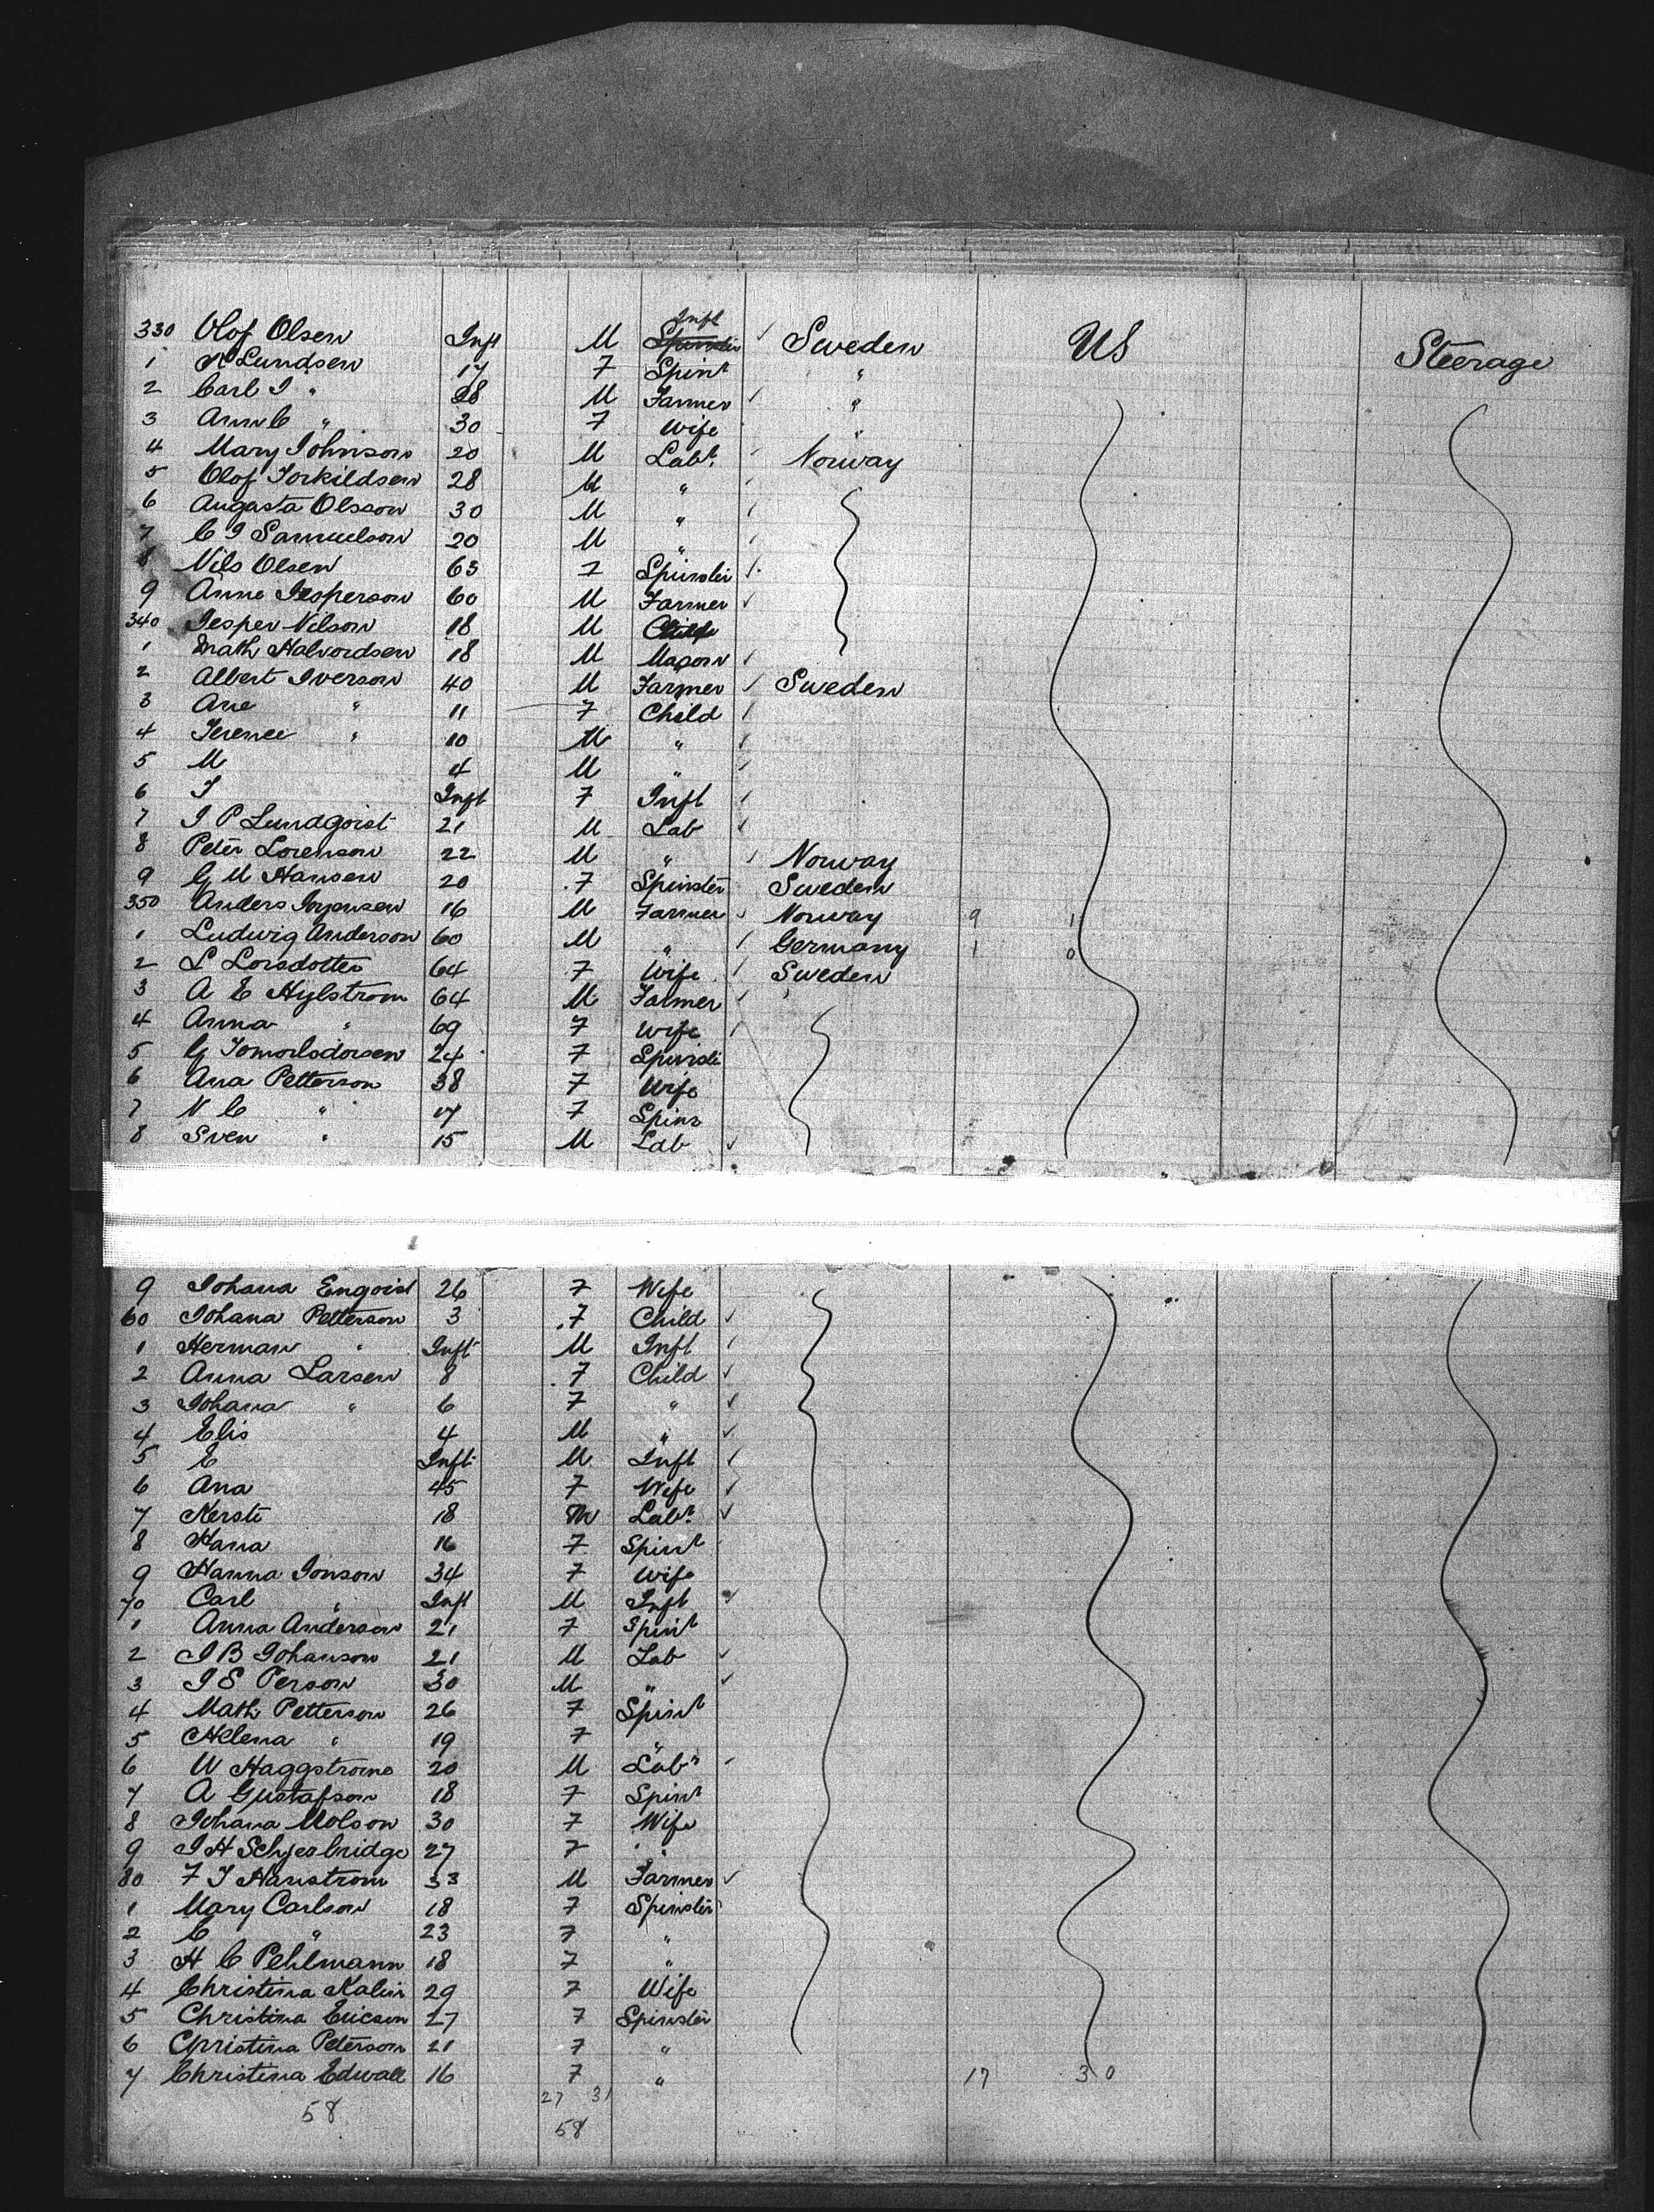 330 Olof Olsen Inft M Spinster Inft Sweden US Steerage
1 K Lundsen 17 F Spinr "
2 Carl I " 28 M Farmer "
3 Ann C " 30 F Wife "
4 Mary Johnson 20 M Labr. Norway
5 Olof Torkildsen 28 M "
6 Augasta Olsson 30 M "
7 C I Samuelson 20 M "
8 Nils Olsen 63 F Spinster
9 Anne Jesperson 60 M Farmer
340 Jesper Nilson 18 M
1 Math Halvordsen 18 M Mason
2 Albert Iverson 40 M Farmer Sweden
3 Ane " 11 F Child
4 Terence " 10 M "
5 M 4 M "
6 I Inft F Inft
7 I P Lundqoist 21 M Lab
8 Peter Lorenson 22 M " Norway
9 G M Hansen 20 F Spinster Sweden
350 Anders 16 M Farmer Norway 9 1
1 Ludwig Anderson 60 M " Germany 1 0
2 L Lorsdotter 64 F Wife Sweden
3 A E Hylstrom 64 M Farmer
4 Anna " 69 F Wife
5 G 24 F Spinste
6 Ana Petterson 38 F Wife
7 N C " 17 F Spins
8 Sven " 15 M Lab
9 Johana Engoist 26 F Wife
60 Johana Petterson 3 F Child
1 Herman " Inft M Inft
2 Anna Larsen 8 F Child
3 Johana " 6 F "
4 Elis 4 M "
5 E Inft M Inft
6 Ana 45 F Wife
7 Kersti 18 M Labr.
8 Hana 16 F Spinr
9 Hanna Jonson 34 F Wife
70 Carl " Inft M Inft
1 Anna Anderson 21 F Spinr
2 I B Johanson 21 M Lab
3 I E Person 30 M "
4 Math Petterson 26 F Spinr
5 Helena " 19 F "
6 W Haggstrome 20 M Labr
7 A Gustafson 18 F Spinr
8 Johana Molson 30 F Wife
9 I H Schjesbridge 27 F "
80 F I Hanstrom 33 M Farmer
1 Mary Carlson 18 F Spinster
2 C " 23 F "
3 H C Pehlmann 18 F "
4 Christina Kalin 29 F Wife
5 Christina Ericson 27 F Spinster
6 Christina Peterson 21 F "
7 Christina Edwall 16 F " 17 30
27 31
58 58